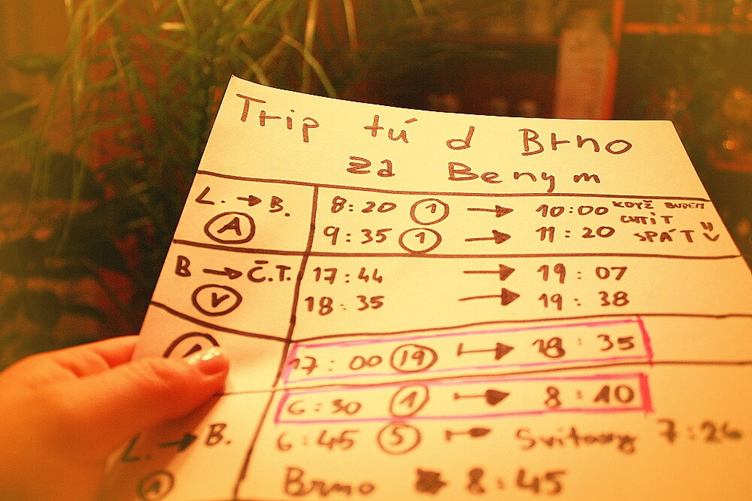 Trip tú d Brno
za Benym
L. → B. 8:20 ① → 10:00 KDYŽ BUDEM
Ⓐ 9:35 ① → 11:20 CHTÍT SPÁT
B → Č.T. 17:44 → 19:07
Ⓥ 18:35 → 19:38
17:00 ⑲ → 18:35
6:30 ① → 8:10
L. → B. 6:45 ⑤ → Svitavy 7:26
Ⓐ Brno 8:45